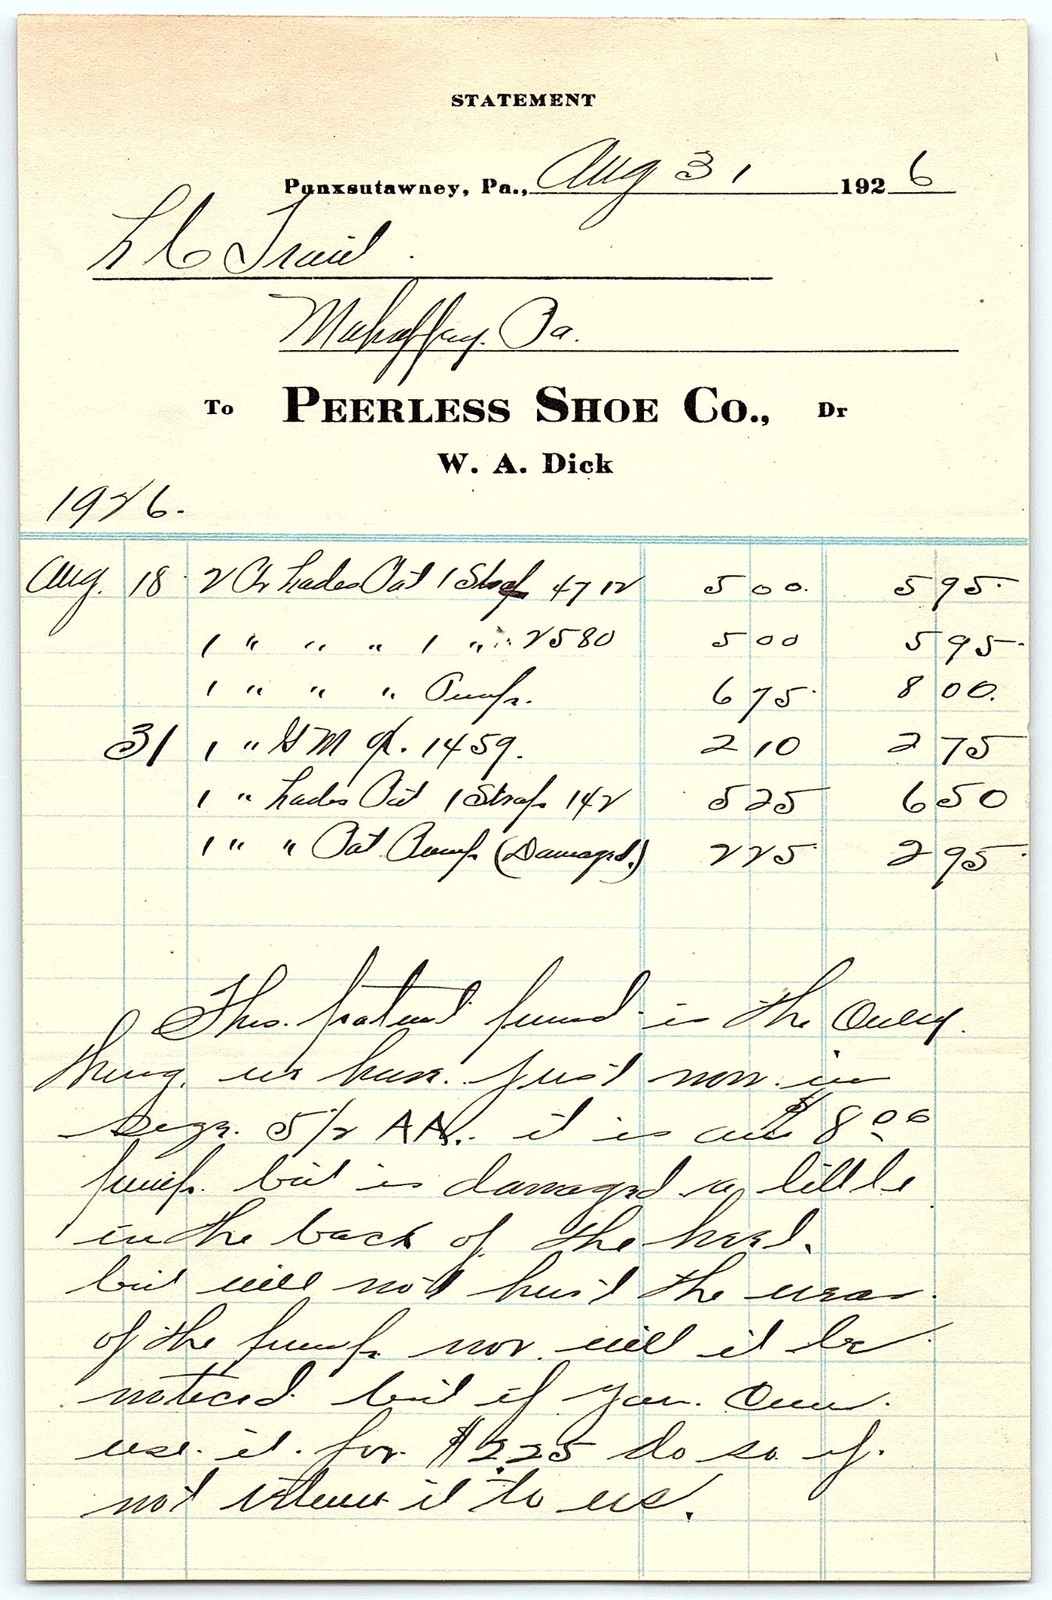 STATEMENT
Punxsutawney, Pa., Aug 31 1926
L C Traid
Mahaffay. Pa.
To PEERLESS SHOE CO., Dr
W. A. Dick
1926.
Aug. 18 2 Pr Lades Pat 1 Strap 4712 500. 595.
1 " " " 1 " 2580 500 595.
1 " " " Pump. 675. 800.
31 1 " G M 1459. 210 275
1 " Lades Pat 1 Strap 142 525 650
1 " " Pat Pump (Damaged.) 225 295.
This patent pump is the only
thing we have just now in
size. 5 1/2 AA. it is our $8.00
pump. but is damaged a little
in the back of the heel.
but will not hurt the wear.
of the pump. nor will it be
noticed but if you can.
use it. for $2.25 do so if.
not return it to us.